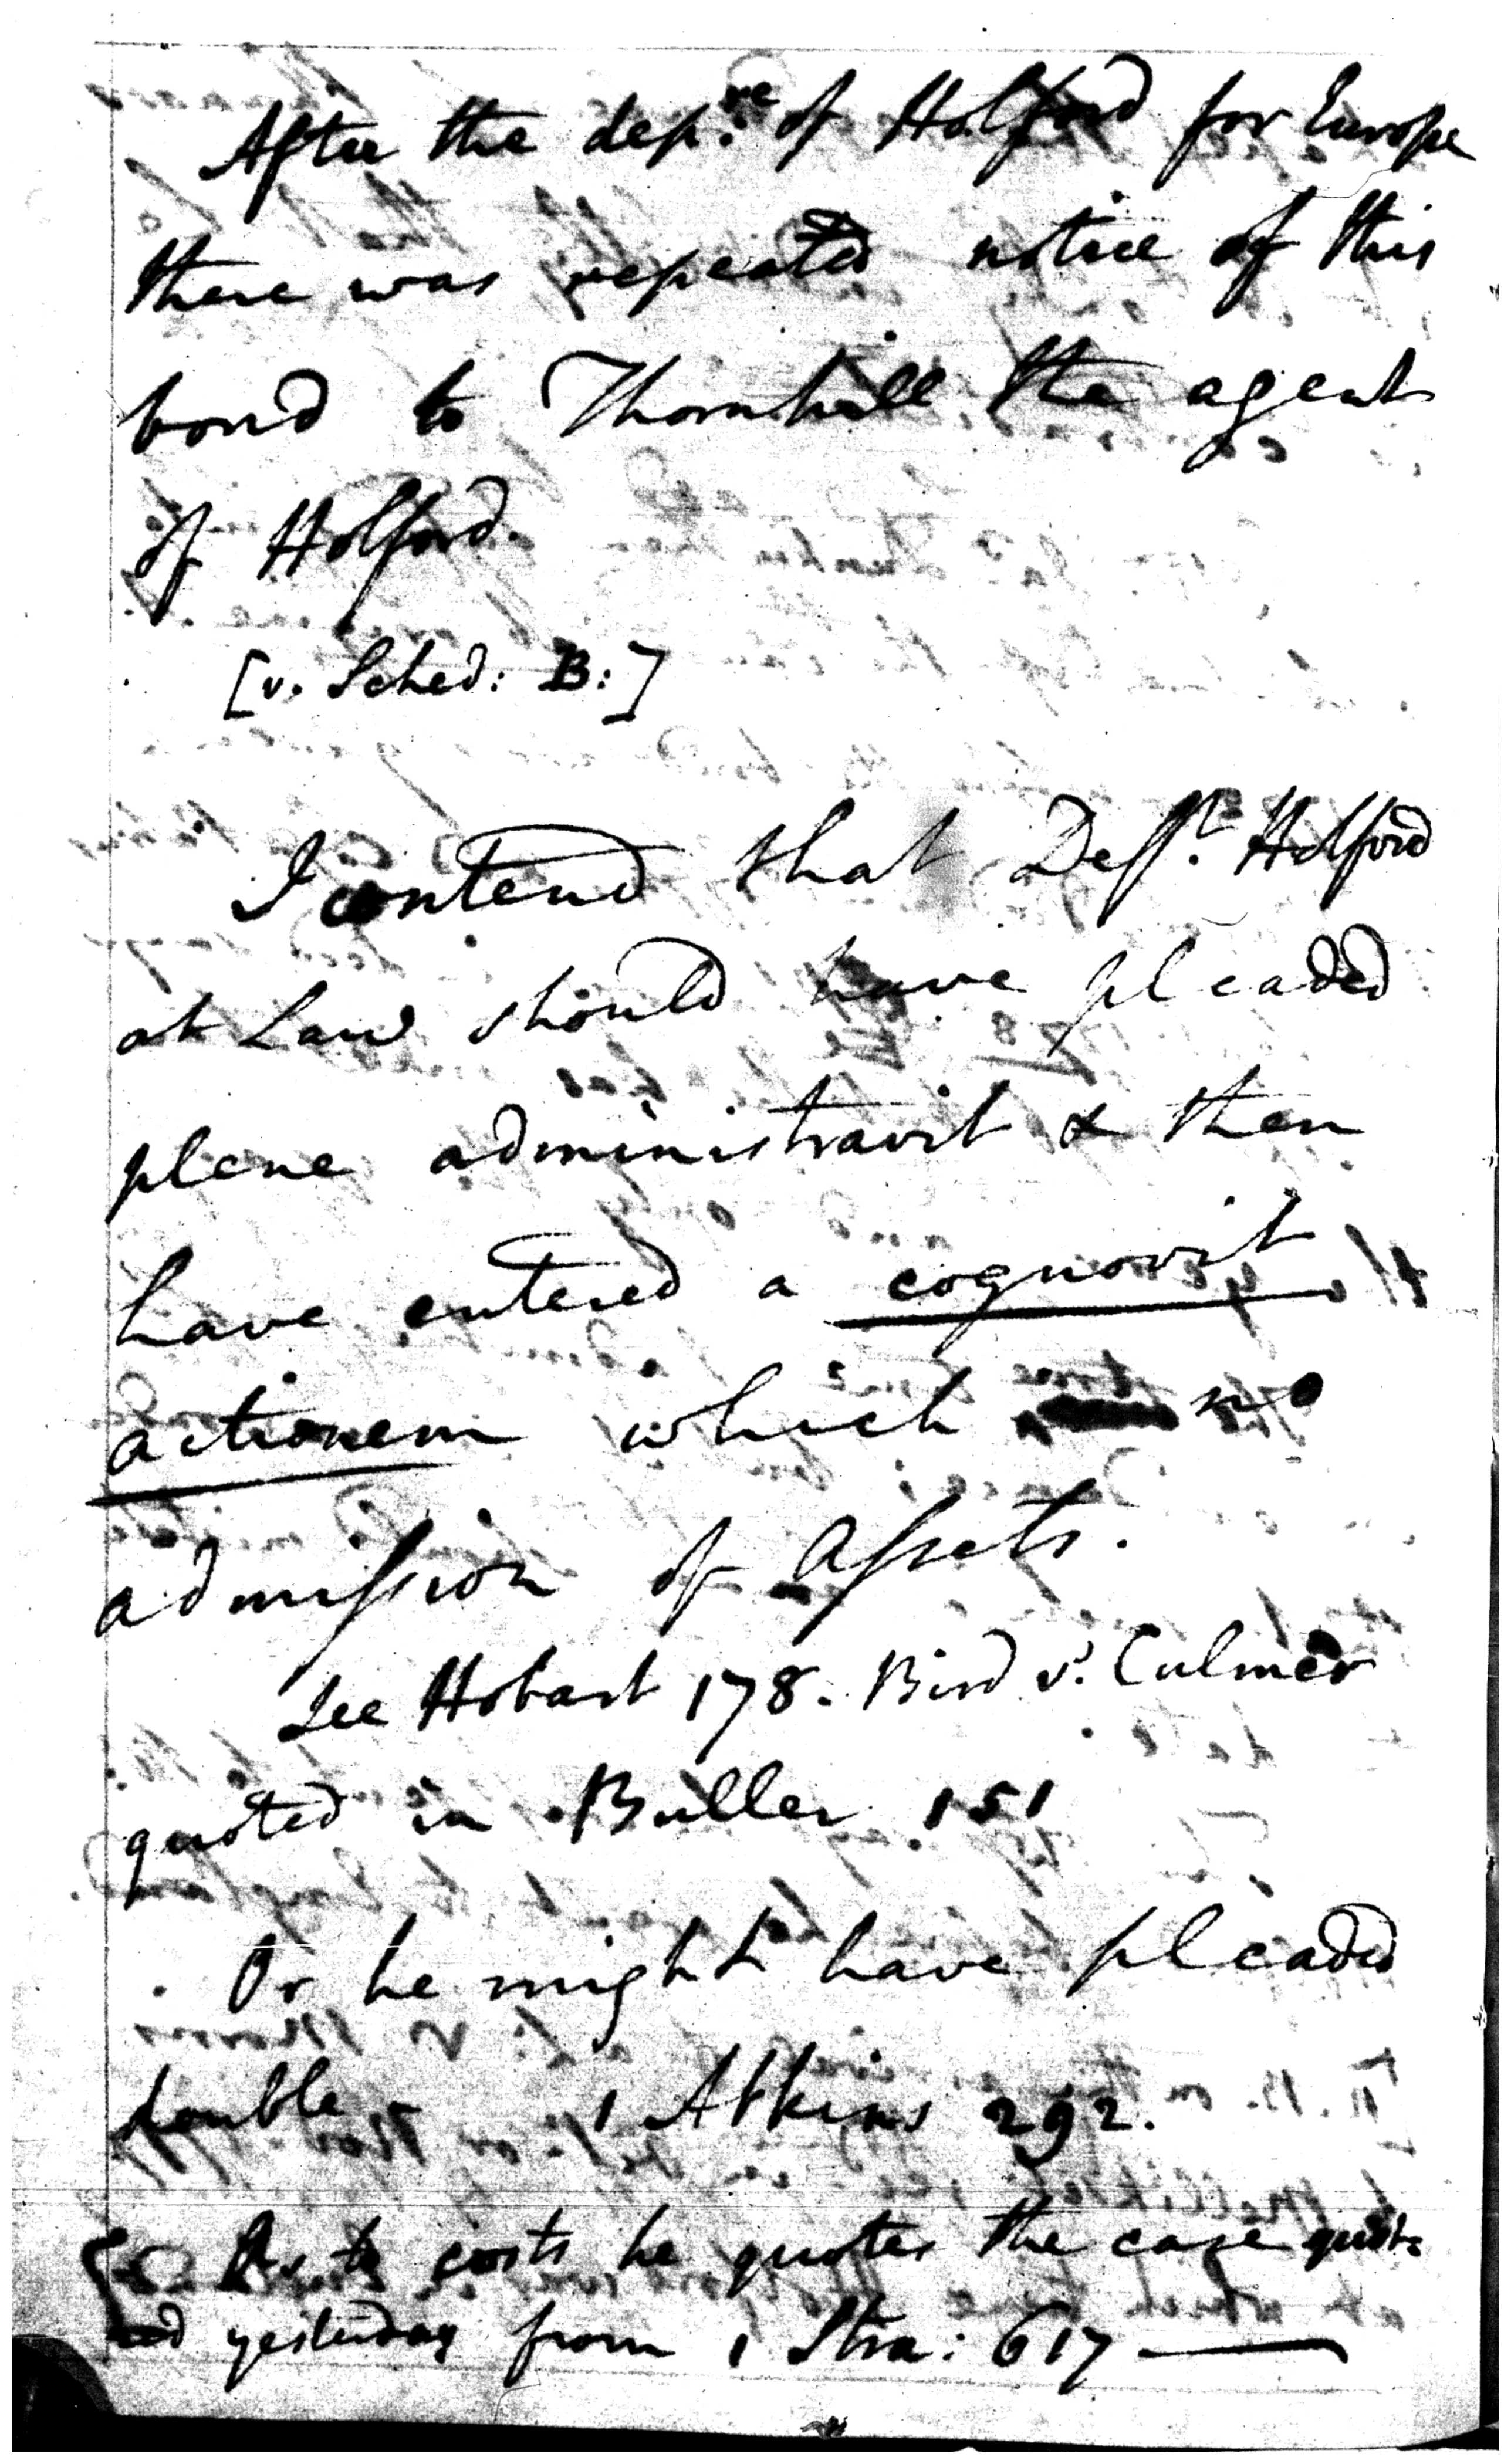 After the dep.re of Holford for Europe
there was repeated notice of this
bond to Thornhill the agent
of Holford.
[v. Sched: B:]
I contend that Deft. Holford
at Law should have pleaded
plene administravit & then
have entered a cognovit
actionem which no
admission of Assets.
See Hobart 178. Bird v. Culmer
quoted in Buller 151
Or he might have pleaded
double - 1 Atkins 292.
As to costs he quotes the case quot=
ed yesterday from 1 Stra: 617 —